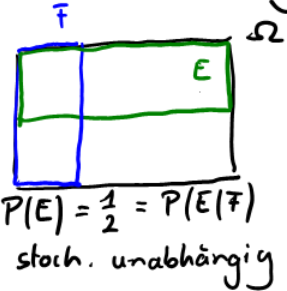 F
Ω
E
P(E) = 1/2 = P(E|F)
stoch. unabhängig